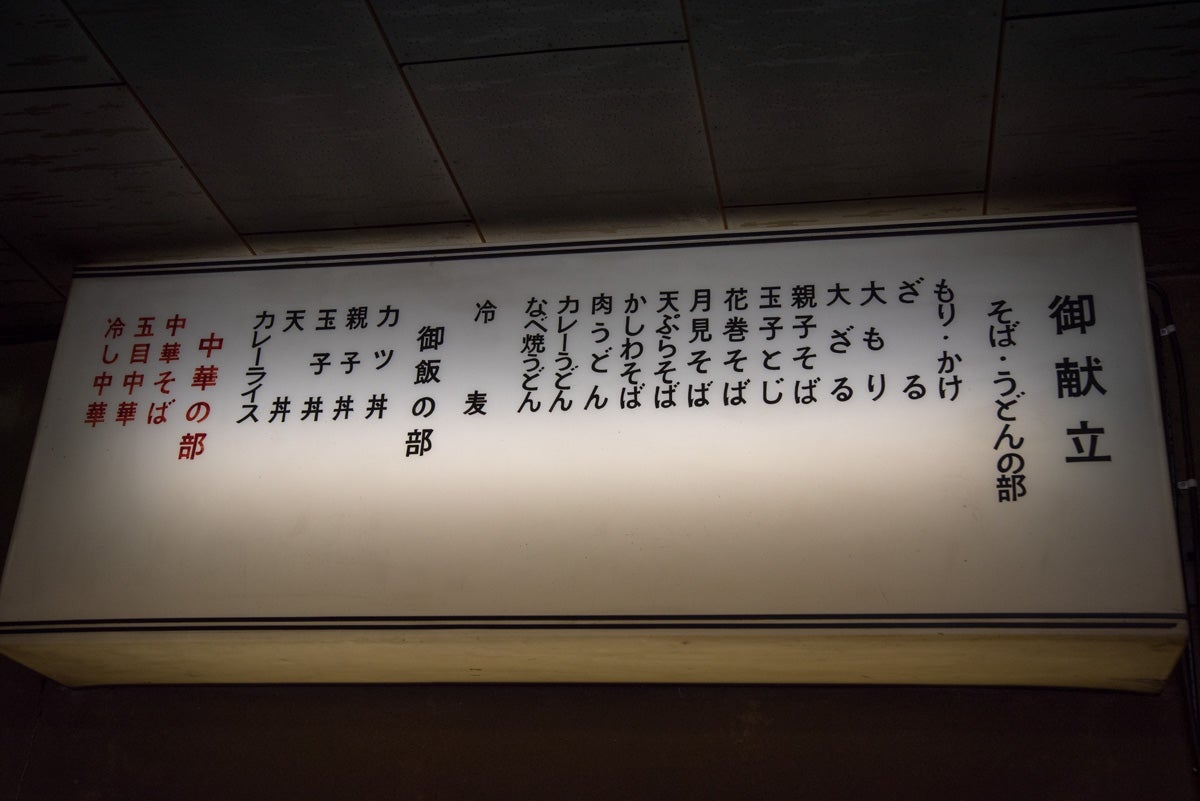 御献立
そば・うどんの部
もり・かけ
ざる
大もり
大ざる
親子そば
玉子とじ
花巻そば
月見そば
天ぷらそば
かしわそば
肉うどん
カレーうどん
なべ焼うどん
冷麦
御飯の部
カツ丼
親子丼
玉子丼
天丼
カレーライス
中華の部
中華そば
五目中華
冷し中華